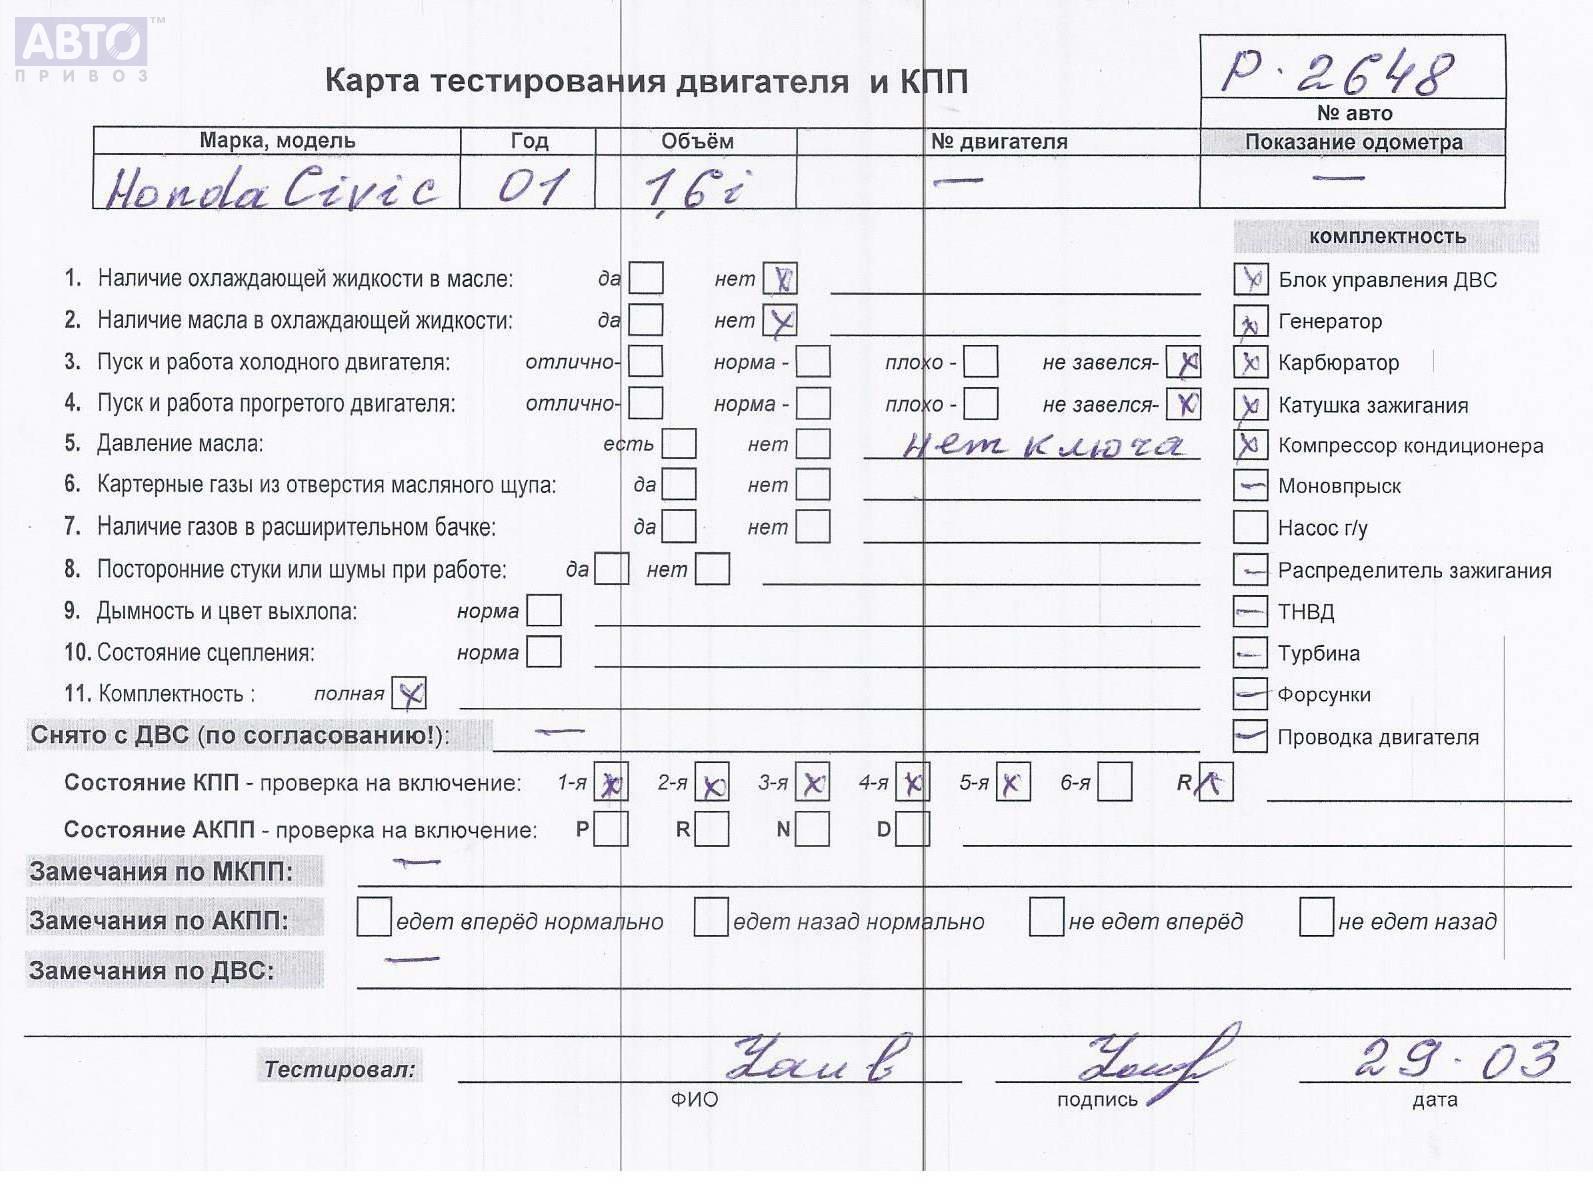 АВТО™
ПРИВОЗ
Карта тестирования двигателя и КПП
Р·2648
№ авто
Марка, модель Год Объём № двигателя Показание одометра
Honda Civic 01 1,6i — —
комплектность
1. Наличие охлаждающей жидкости в масле: да нет X Блок управления ДВС
2. Наличие масла в охлаждающей жидкости: да нет X Генератор
3. Пуск и работа холодного двигателя: отлично- норма - плохо - не завелся- X Карбюратор
4. Пуск и работа прогретого двигателя: отлично- норма - плохо - не завелся- X Катушка зажигания
5. Давление масла: есть нет нет ключа X Компрессор кондиционера
6. Картерные газы из отверстия масляного щупа: да нет — Моновпрыск
7. Наличие газов в расширительном бачке: да нет Насос г/у
8. Посторонние стуки или шумы при работе: да нет — Распределитель зажигания
9. Дымность и цвет выхлопа: норма — ТНВД
10. Состояние сцепления: норма — Турбина
11. Комплектность : полная X — Форсунки
Снято с ДВС (по согласованию!): — — Проводка двигателя
Состояние КПП - проверка на включение: 1-я X 2-я X 3-я X 4-я X 5-я X 6-я R X
Состояние АКПП - проверка на включение: P R N D
Замечания по МКПП: —
Замечания по АКПП: едет вперёд нормально едет назад нормально не едет вперёд не едет назад
Замечания по ДВС: —
Тестировал: 29·03
ФИО подпись дата